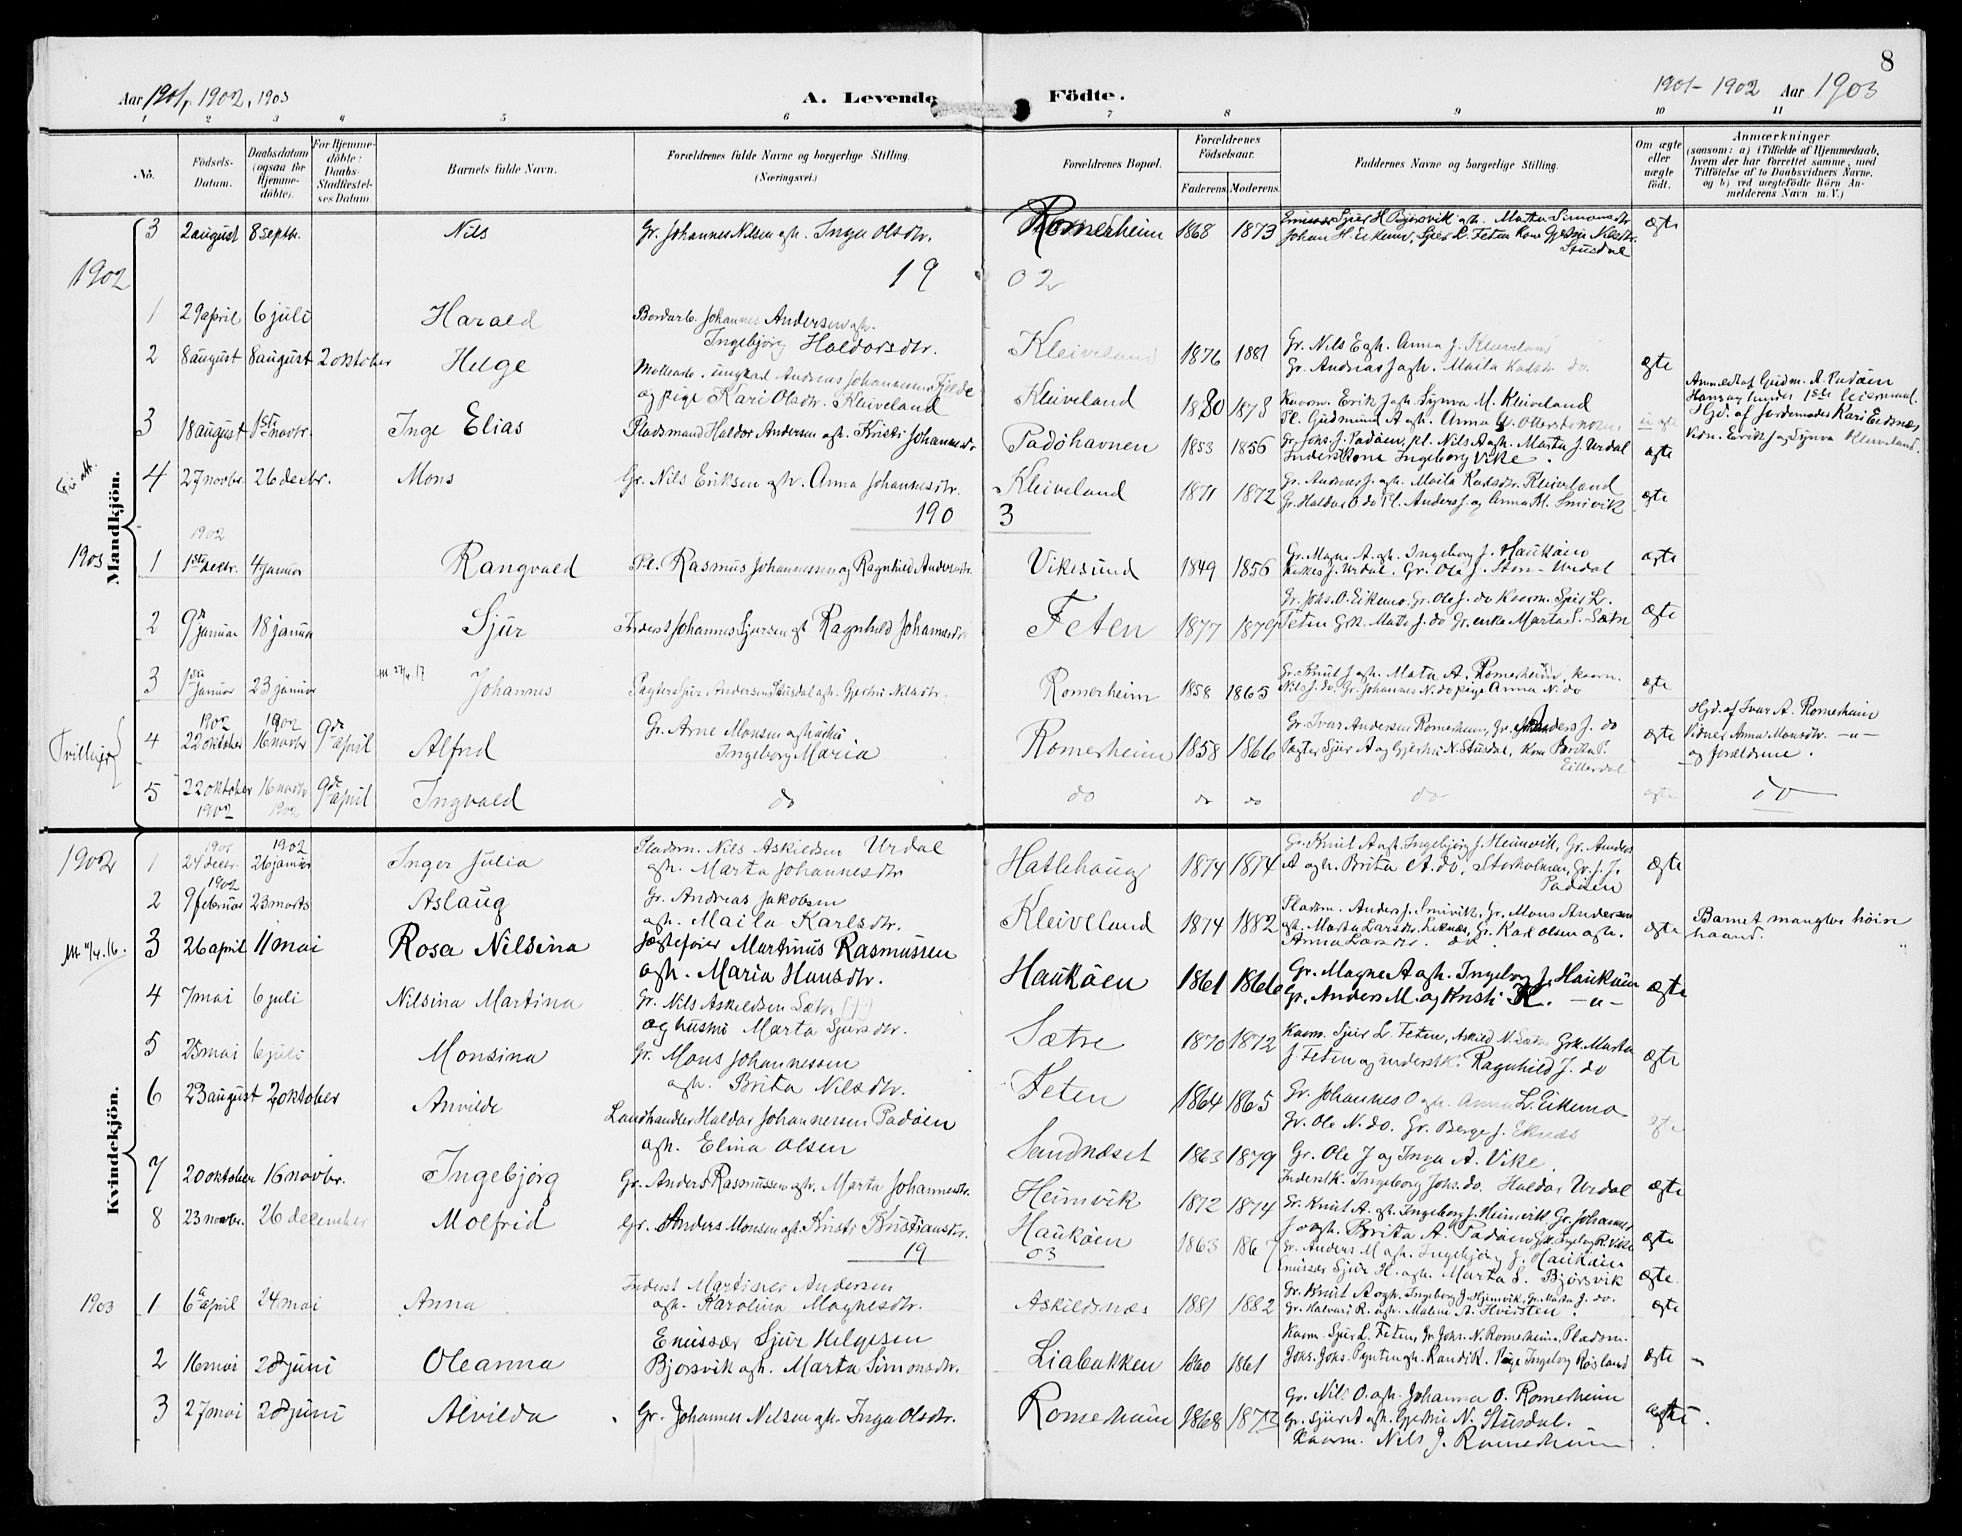 8
Aar 1901, 1902, 1903
A. Levende Födte.
1901-1902 Aar 1903
1 2 3 4 5 6 7 8 9 10 11
No.
Födsels-Datum.
Daabsdatum (ogsaa for Hjemmedöbte).
For Hjemmedöbte: Daabs-Stadfæstelses Datum.
Barnets fulde Navn.
Forældrenes fulde Navne og borgerlige Stilling. (Næringsvei.)
Forældrenes Bopæl.
Forældrenes Födselsaar.
Faderens Moderens
Faddernes Navne og borgerlige Stilling.
Om ægte eller uægte födt.
Anmærkninger (saasom: a) i Tilfælde af Hjemmedaab, hvem der har forrettet samme, med Tilföielse af to Daabsvidners Navne. og b) ved uægtefödte Börn Anmelderens Navn m. V.)
Mandkjön.
3 2 august 8 septbr. Nils Gr. Johannes Nilsen og h. Inga Olsdtr. Romerheim 1868 1873 Emissær Sjur H Bjorsvik og h. Marta Simonsdtr. ægte
Johan H. Eikemo, Sjur L. Feten
Stusdal
1902 19 02
1 29 april 6 juli Harald Bordarb. Johannes Andersen og h.
Ingebjörg Haldorsdtr. Kleiveland 1876 1881 Gr. Nils E og h. Anna J. Kleiveland
Gr. Andreas J og h. Maila Karlsdtr. do ægte
2 8 august 8 august 2 oktober Helge ungkarl Andreas Johannesen
og pige Kari Olsdtr. Kleiveland Kleiveland 1880 1878 Kaarm. Erik J og h. Synva M. Kleiveland
Pl. Gudmund A og h. Anna
3 18 august 1ste novbr. Inge Elias Pladsmand Haldor Andersen og h. Kristi Johannesdtr. Padöhavnen 1853 1856 Gr. Johs. J. Padöen, pl. Nils A og h. Marta J. Urdal
Inderstkone Ingeborg Vike. ægte
Vidn. Erik J og Synva Kleiveland.
4 27 novbr. 26 decbr. Mons Gr. Nils Eriksen og h. Anna Johannesdtr. Kleiveland 1871 1872 Gr. Andreas J. og h. Maila Karlsdtr. Kleiveland
Gr. Haldor O do Pl. Anders J. og Anna M. Smivik ægte
190 3
1903
1902
1 1ste decbr. 4 januar Rangvald Pl. Rasmus Johannessen og Ragnhild Andersdtr. Vikesund 1849 1856 Gr. Magne A. og h. Ingeborg J. Hauköen
J. Urdal. Gr. Ole J. Stor-Urdal ægte
2 9de januar 18 januar Sjur Inderst Johannes Sjursen og h Ragnhild Johannesdtr Feten 1877 1879 Gr. Johs. O. Eikemo, Gr. Ole J. do Kaarm. Sjur L.
Feten Grk. Marta J. do Gr. enke Marta S. Sætre ægte
3 1ste januar 23 januar Johannes Pagter Sjur Andersen Stusdal og h. Gjertrui Nilsdtr. Romerheim 1858 1865 Gr. Knut J og h. Marta A. Romerheim, kaarm.
Nils J. do, Gr. Johannes N. do pige Anna N. do ægte
Tvillinger
4 1902 22 oktober 1902 16 novbr 9de april Alfred Gr. Arne Monsen og hustru
Ingeborg Maria Romerheim 1858 1866 Gr. Ivar Andersen Romerheim, Gr. Anders J. do
Pagter Sjur A og Gjertrui N. Stusdal, Kone Brita P.
Eitterdal ægte
Hjd. af Ivar A. Romerheim
Vidner Anna Monsdtr. -"-
og forældrene.
5 22 oktober 1902 16 novbr 1902 9de april Ingvald do do do do do ægte do
Kvindekjön.
1902
1 1901 24 decbr. 1902 26 januar Inger Julia Pladsm. Nils Askildsen Urdal
og h. Marta Johannesdtr Hatlehaug 1874 1874 Gr. Knut A og h. Ingebjörg J. Heimvik, Gr. Anders
A og h. Brita A. do, Storholmen, Gr. J. J.
Padöen ægte
2 1902 9 februar 23 marts Aslaug Gr. Andreas Jakobsen
og h. Maila Karlsdtr. Kleiveland 1874 1882 Pladsm. Anders J. Smivik, Gr. Mons Andersen
og h. Marta Larsdtr. Eiknes, Gr. Karl Olsen og h.
Anna Larsdtr. do ægte
Barnet mangler höire
haand.
3 26 april 11 mai Rosa Nilsina Jægteföier Martinus Rasmussen
og h. Maria Hansdtr. Hauköen 1861 1866 Gr. Magne A og h. Ingeborg J. Hauköen
Gr. Anders M. og Kristi K. -"- ægte
4 7 mai 6 juli Nilsina Martina Gr. Nils Askildsen Sætre (†)
og hustru Marta Sjursdtr. Sætre 1870 1872 Kaarm. Sjur L. Feten, Askild N. Sætre Grk. Marta
J. Feten og inderstk. Ragnhild J. do ægte
5 25 mai 6 juli Monsina Gr. Mons Johannessen
og h. Brita Nilsdtr. Feten 1864 1865 Gr. Johannes O og h. Anna L. Eikemo
Gr. Ole N. do, Gr. Berge J. Eknes ægte
6 23 august 2 oktober Anvilde Landhandler Haldor Johannessen Padöen
og h. Elina Olsen Sandnæset 1863 1879 Gr. Ole J og Inga A. Vike.
Inderstk. Ingeborg Johs. do. Haldor Urdal ægte
7 20 oktober 16 novbr. Ingebjörg Gr. Anders Rasmussen og h. Marta Johannesdtr. Heimvik 1872 1874 Gr. Knut A. og h. Ingeborg J. Heimvik Gr. Johannes
J og h. Brita A. Padöen ægte
8 23 novbr. 26 december Molfrid Gr. Anders Monsen og h. Kristi Kristiansdtr. Hauköen 1863 1867 Gr. Anders M og h. Ingebjörg J. Hauköen
Emissær Sjur H. og h. Marta S. Björsvik ægte.
19 03
1903
1 6te april 24 mai Anna Inderst Martinus Andersen
og h. Karolina Magnesdtr. Askildsnæs 1881 1882 Gr. Knut A og h. Ingeborg J. Hjemvik, Gr. Marta J. do.
Gr. Halvard R. og h. Malene A. ægte
2 16 mai 28 juni Oleanna Emissær Sjur Helgesen
Bjorsvik og h. Marta Simonsdtr. Liabakken 1860 1861 Kaarm. Sjur L. Feten, Gr. Johs. N. Romerheim, Pladsm.
Johs. Johs. og h. Randi K. Pige Ingeborg Röisland ægte
3 27 mai 28 juni Alvilda Gr. Johannes Nelsen og h. Inga Olsdtr. Romerheim 1868 1873 Gr. Nils O. og h. Johanna O. Romerheim
Gr. Sjur A og h. Gjertrui N. Stusdal.
Kaarm. Nils J. Romerheim ægte.